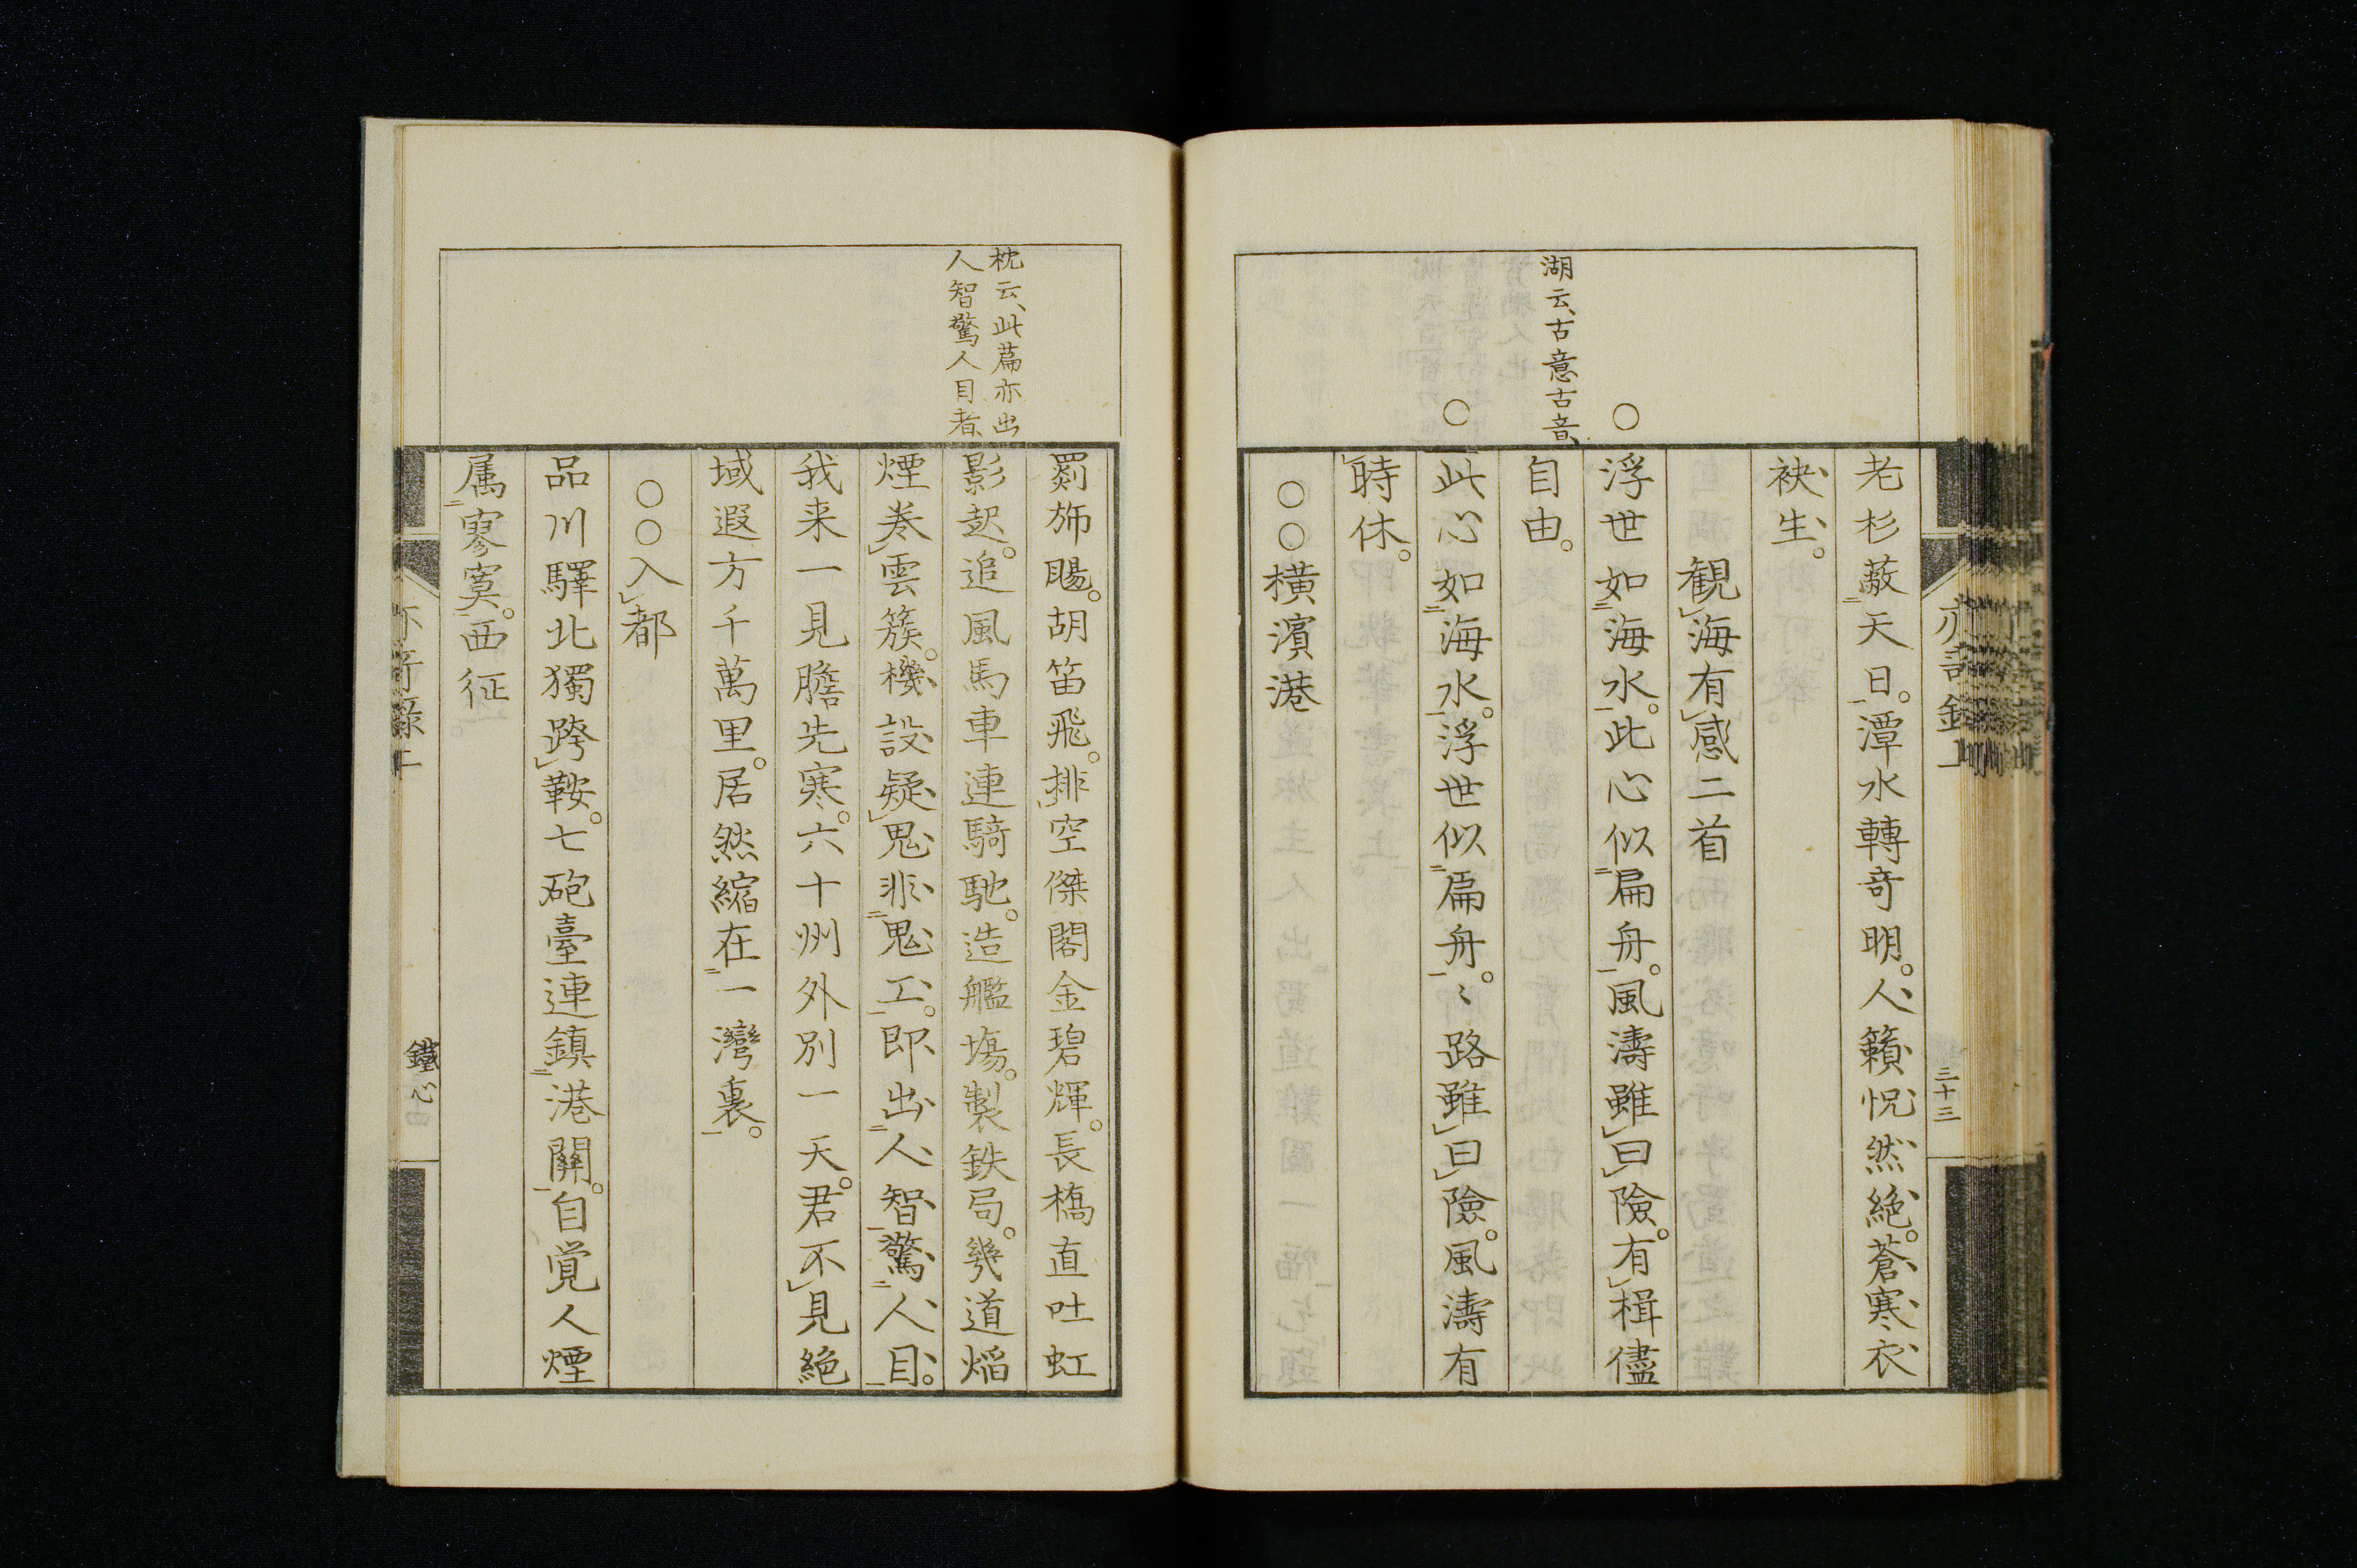 老杉蔽天日。潭水轉奇明。人籟怳然絶。蒼寒衣
袂生。
観海有感二首
浮世如海水。此心似扁舟。風濤雖曰險。有楫儘
自由。
此心如海水。浮世似扁舟。〻路雖曰險。風濤有
時休。
○○横濱港
湖云、古意古音、
○
○
三十三
罽旆颺。胡笛飛。排空傑閣金碧輝。長橋直吐虹
影起。追風馬車連騎馳。造艦塲。製鉄局。幾道焰
煙巻雲簇。機設疑鬼非鬼工。即出人智驚人目。
我来一見膽先寒。六十州外別一天。君不見絶
域遐方千萬里。居然縮在一灣裏。
○○入都
品川驛北獨跨鞍。七砲臺連鎮港關。自覚人煙
属寥寞。西征
枕云、此篇亦出
人智驚人目者、
鐵心